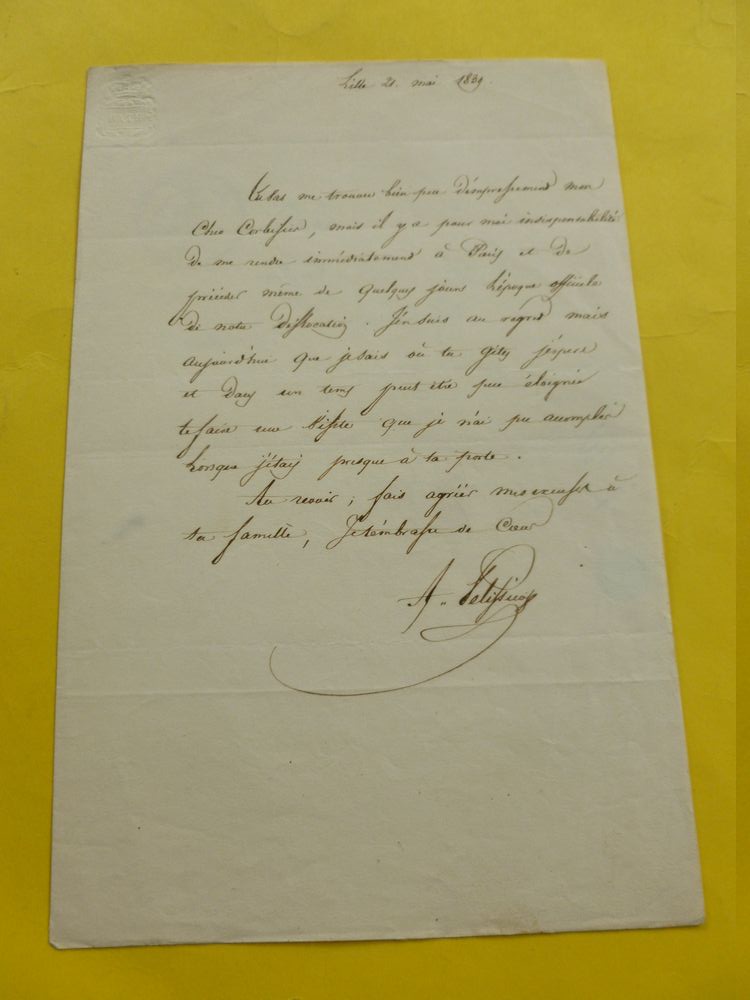 Lille 21. mai 1839.
tu vas me trouver bien peu d'empressement mon
Cher Corbesier, mais il y a pour moi indispensabilité
de me rendre immédiatement à Paris et de
précéder même de quelques jours l'époque officiele
de notre dislocation. J'en suis au regret mais
aujourd'hui que je sais où tu gîtes j'espère
et dans un tems peut être peu éloignée
te faire une visite que je n'ai pu acomplir
lorsque j'étais presque à ta porte.
Au revoir, fais agréer mes excuses à
ta famille, Je t'embrasse de Cœur
A. Pelissier